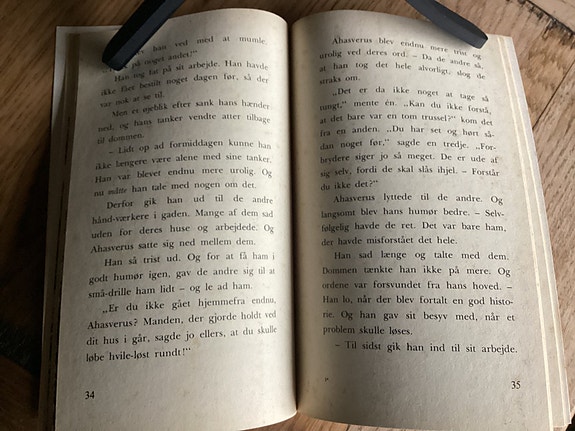 blev han ved med at mumle.
på noget andet!"
Han tog fat på sit arbejde. Han havde
ikke fået bestilt noget dagen før, så der
var nok at se til.
Men et øjeblik efter sank hans hænder
ned, og hans tanker vendte atter tilbage
til dommen.
– Lidt op ad formiddagen kunne han
ikke længere være alene med sine tanker.
Han var blevet endnu mere urolig. Og
nu måtte han tale med nogen om det.
Derfor gik han ud til de andre
hånd-værkere i gaden. Mange af dem sad
uden for deres huse og arbejdede. Og
Ahasverus satte sig ned mellem dem.
Han så trist ud. Og for at få ham i
godt humør igen, gav de andre sig til at
små-drille ham lidt – og le ad ham.
„Er du ikke gået hjemmefra endnu,
Ahasverus? Manden, der gjorde holdt ved
dit hus i går, sagde jo ellers, at du skulle
løbe hvile-løst rundt!"
34
Ahasverus blev endnu mere trist og
urolig ved deres ord. – Da de andre så,
at han tog det hele alvorligt, slog de
straks om.
„Det er da ikke noget at tage så
tungt," mente én. „Kan du ikke forstå,
at det bare var en tom trussel?" kom det
fra en anden. „Du har set og hørt så-
dan noget før," sagde en tredje. „For-
brydere siger jo så meget. De er ude af
sig selv, fordi de skal slås ihjel. – Forstår
du ikke det?"
Ahasverus lyttede til de andre. Og
langsomt blev hans humør bedre. – Selv-
følgelig havde de ret. Det var bare ham,
der havde misforstået det hele.
Han sad længe og talte med dem.
Dommen tænkte han ikke på mere. Og
ordene var forsvundet fra hans hoved. –
Han lo, når der blev fortalt en god histo-
rie. Og han gav sit besyv med, når et
problem skulle løses.
– Til sidst gik han ind til sit arbejde.
35